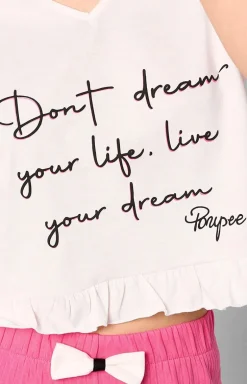 Don't dream
your life. live
your dream
Ponpee